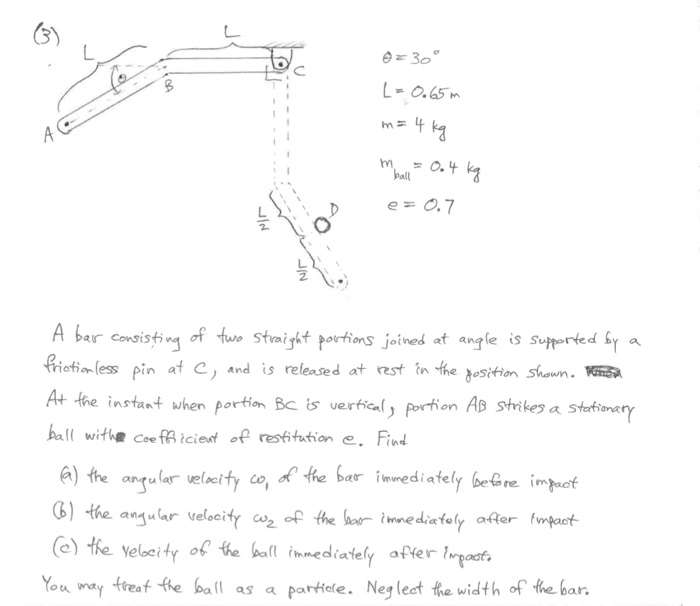 (3)
L
L
θ
B
C
A
D
L/2
L/2
θ = 30°
L = 0.65 m
m = 4 kg
m_ball = 0.4 kg
e = 0.7
A bar consisting of two straight portions joined at angle is supported by a
frictionless pin at C, and is released at rest in the position shown.
At the instant when portion BC is vertical, portion AB strikes a stationary
ball with coefficient of restitution e. Find
(a) the angular velocity ω₁ of the bar immediately before impact
(b) the angular velocity ω₂ of the bar immediately after impact
(c) the velocity of the ball immediately after impact.
You may treat the ball as a particle. Neglect the width of the bar.